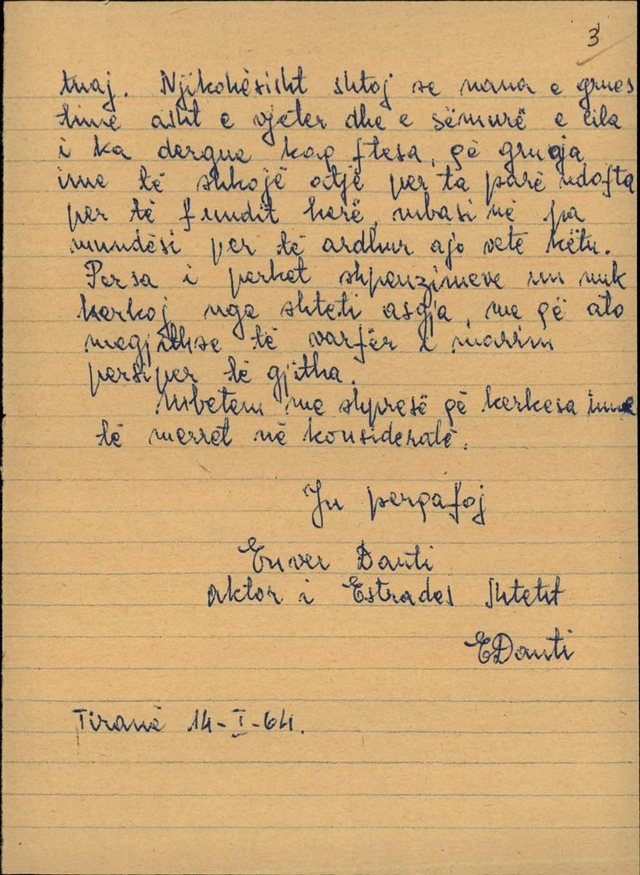 3
tuaj. Njikohësisht shtoj se nana e grues
time asht e vjeter dhe e sëmurë e cila
i ka dergue kaq ftesa, qê grueja
ime të shkojë atje per ta parë ndofta
per të fundit herë, mbasi në pa
mundësi per të ardhur ajo vetë këtu.
Persa i perket shpenzimeve un nuk
kerkoj nga shteti asgja, me qê ato
megjithse të varfër i marrim
persiper të gjitha.
Mbetem me shpresë qê kerkesa ime
të merret në konsideratë.
Ju perqafoj
Enver Danti
aktor i Estrades Shtetit
EDanti
Tiranë 14-I-64.